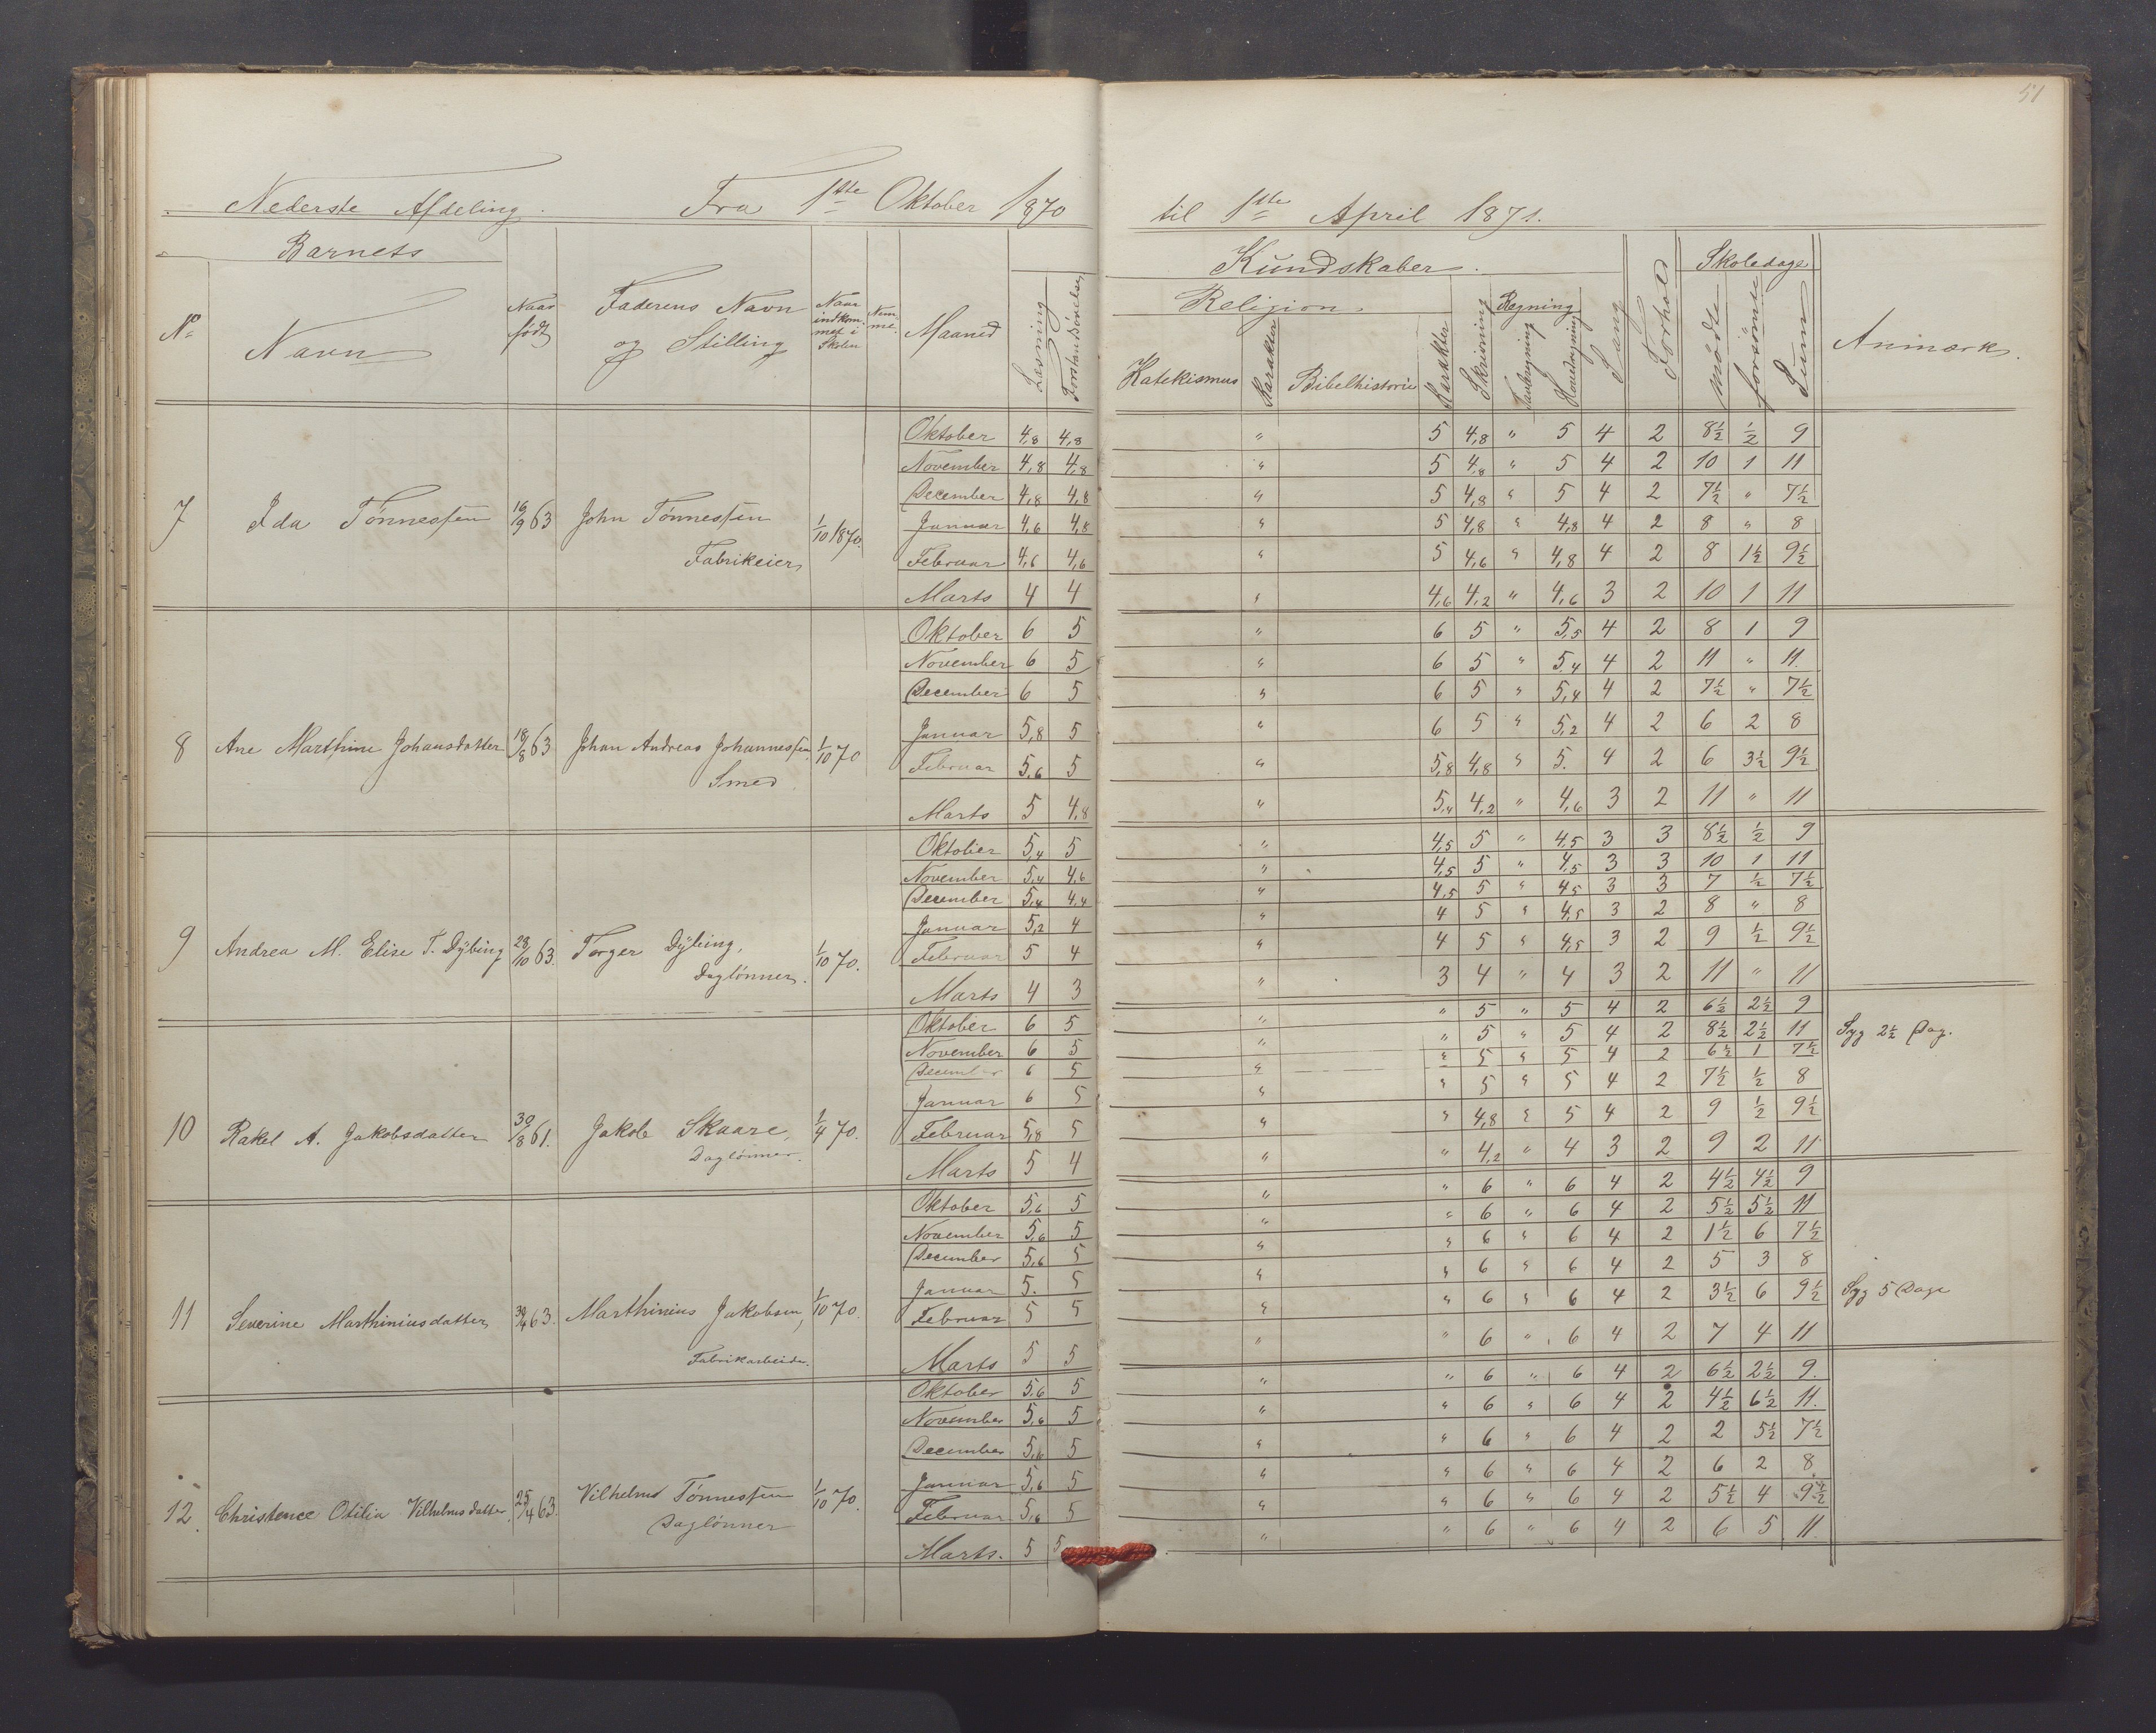 51
Nederste Afdeling. Fra 1ste Oktober 1870 til 1ste April 1871.
Barnets Kundskaber. Skoledage
No Navn Naar født Faderens Navn og Stilling Naar indkommet i Skolen Nemme Maaned Læsning Forstandsøvelse Religion Katekismus Karakter Bibelhistorie Karakter Skrivning Regning Tavleregning Hovedregning Sang Forhold mødte forsømte Sum Anmærk.
7 Ida Tønnessen 16/9 63 John Tønnessen Fabrikeier 1/10 1870.
Oktober 4,8 4,8 " 5 4,8 " 5 4 2 8½ ½ 9
November 4,8 4,8 " 5 4,8 " 5 4 2 10 1 11
December 4,8 4,8 " 5 4,8 " 5 4 2 7½ " 7½
Januar 4,6 4,8 " 5 4,8 " 4,8 4 2 8 " 8
Februar 4,6 4,6 " 5 4,6 " 4,8 4 2 8 1½ 9½
Marts 4 4 " 4,6 4,2 " 4,6 3 2 10 1 11
8 Ane Marthine Johansdatter 18/8 63 Johan Andreas Johannessen Smed 1/10 70
Oktober 6 5 " 6 5 " 5,5 4 2 8 1 9
November 6 5 " 6 5 " 5,4 4 2 11 " 11.
December 6 5 " 6 5 " 5,4 4 2 7½ " 7½
Januar 5,8 5 " 6 5 " 5,2 4 2 6 2 8
Februar 5,6 5 " 5,8 4,8 " 5. 4 2 6 3½ 9½
Marts 5 4,8 " 5,4 4,2 " 4,6 3 2 11 " 11
9 Andrea M. Elise T. Dÿbing 28/10 63. Torger Dÿbing, Daglønner. 1/10 70.
Oktober 5,4 5 " 4,5 5 " 4,5 3 3 8½ ½ 9
November 5,4 4,6 " 4,5 5 " 4,5 3 3 10 1 11
December 5,4 4,4 " 4,5 5 " 4,5 3 3 7 ½ 7½
Januar 5,2 4 " 4 5 " 4,5 3 2 8 " 8
Februar 5 4 " 4 5 " 4,5 3 2 9 ½ 9½
Marts 4 3 " 3 4 " 4 3 2 11 " 11
10 Rakel A. Jakobsdatter 30/8 61. Jakob Skaare, Daglønner. 1/4 70.
Oktober 6 5 " " 5 " 5 4 2 6½ 2½ 9
November 6 5 " " 5 " 5 4 2 8½ 2½ 11 Syg 2½ Dag.
December 6 5 " " 5 " 5 4 2 6½ 1 7½
Januar 6 5 " " 5 " 5 4 2 7½ ½ 8
Februar 5,8 5 " " 4,8 " 5 4 2 9 ½ 9½
Marts 5 4 " " 4,2 " 4 3 2 9 2 11
11 Severine Marthiniusdatter 63. Marthinius Jakobsen, Fabrikarbeider. 1/10 70.
Oktober 5,6 5 " " 6 " 6 4 2 4½ 4½ 9
November 5,6 5 " " 6 " 6 4 2 5½ 5½ 11
December 5,6 5 " " 6 " 6 4 2 1½ 6 7½
Januar 5. 5 " " 6 " 6 4 2 5 3 8
Februar 5 5 " " 6 " 6 4 2 3½ 6 9½ Syg 5 Dage
Marts 5 5 " " 6 " 6 4 2 7 4 11
12. Christence Otilia Vilhelmsdatter 25/4 63. Vilhelmd Tønnessen Daglønner 1/10 70.
Oktober 5,6 5 " " 6 " 6 4 2 6½ 2½ 9.
November 5,6 5 " " 6 " 6 4 2 4½ 6½ 11.
December 5,6 5 " " 6 " 6 4 2 2 5½ 7½
Januar 5,6 5 " " 6 " 6 4 2 6 2 8
Februar 5,6 5 " " 6 " 6 4 2 5½ 4 9½
Marts. 5 5 " " 6 " 6 4 2 6 5 11